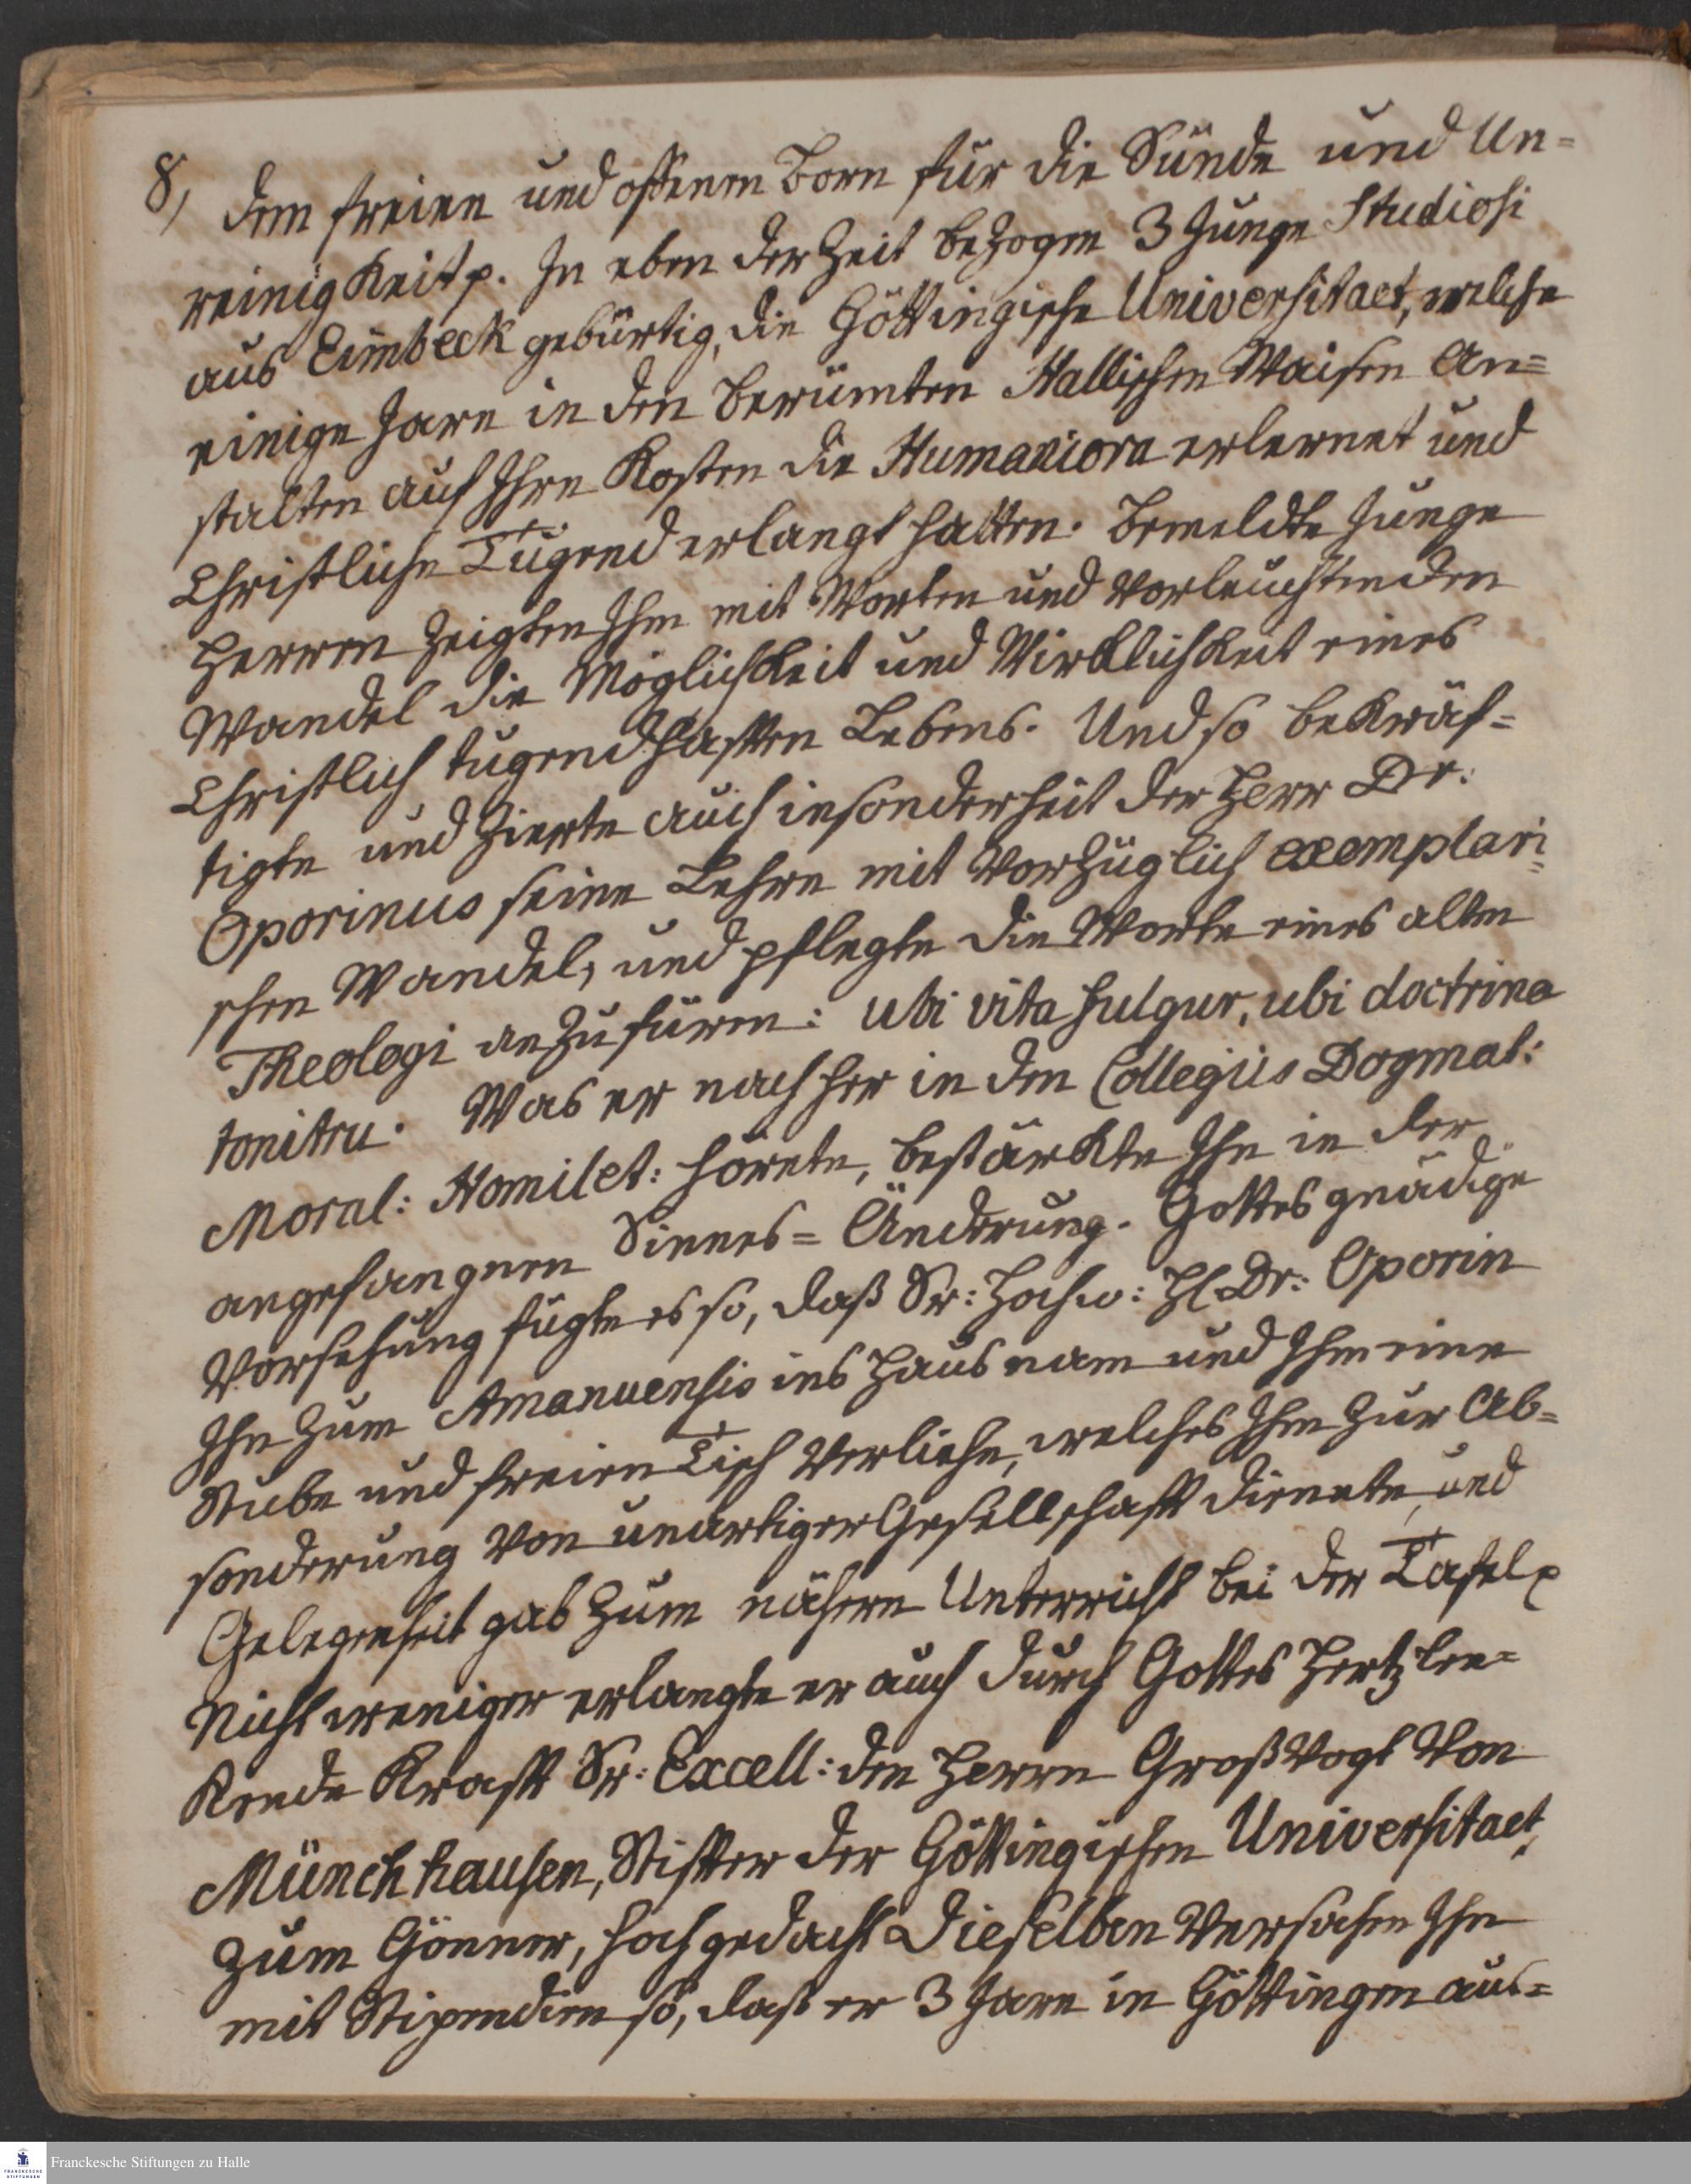 8, dem freien und offenen Born für die Sünde und Un=
reinigkeit p. In eben der Zeit bezogen 3 Junge Studiosi
aus Eimbeck gebürtig, die Göttingische Universitaet, welche
einige Jare in den berümten Hallischen Waisen An=
stalten auf Ihre Kosten die Humaniora erlernet und
Christliche Tugend erlangt hatten. Bemeldte Junge
Herren zeigten Ihm mit Worten und vorleuchtenden
Wandel die Möglichkeit und Wirklichkeit eines
Christlich tugendhafften Lebens. Und so bekräf=
tigte und zierte auch insonderheit der Herr Dr:
Oporinus seine Lehre mit vorzüglich exemplari=
schen Wandel, und pflegte die Worte eines alten
Theologi anzufüren: ubi vita fulgur, ubi doctrina
tonitru. Was er nachher in den Collegiis Dogmat:
Moral: Homilet: hörete, bestärkte Ihn in der
angefangnen Sinnes=Änderung. Gottes gnädige
Vorsehung fügte es so, daß Sr: Hochw: H Dr: Oporin
Ihn zum Amanuensis ins Haus nam und Ihm eine
Stube und freien Tisch verliehe, welches Ihm zur Ab=
sonderung von unartiger Gesellschafft dienete, und
Gelegenheit gab zum nähern Unterricht bei der Tafel p
Nicht weniger erlangte er auch durch Gottes Hertzlen=
kende Krafft Sr: Excell: den Herrn Großvogt von
Münchhausen, Stiffter der Göttingischen Universitaet,
zum Gönner, hochgedacht Dieselben versahen Ihn
mit Stipendien so, daß er 3 Jare in Göttingen aus=
Franckesche Stiftungen zu Halle
FRANCKESCHE
STIFTUNGEN